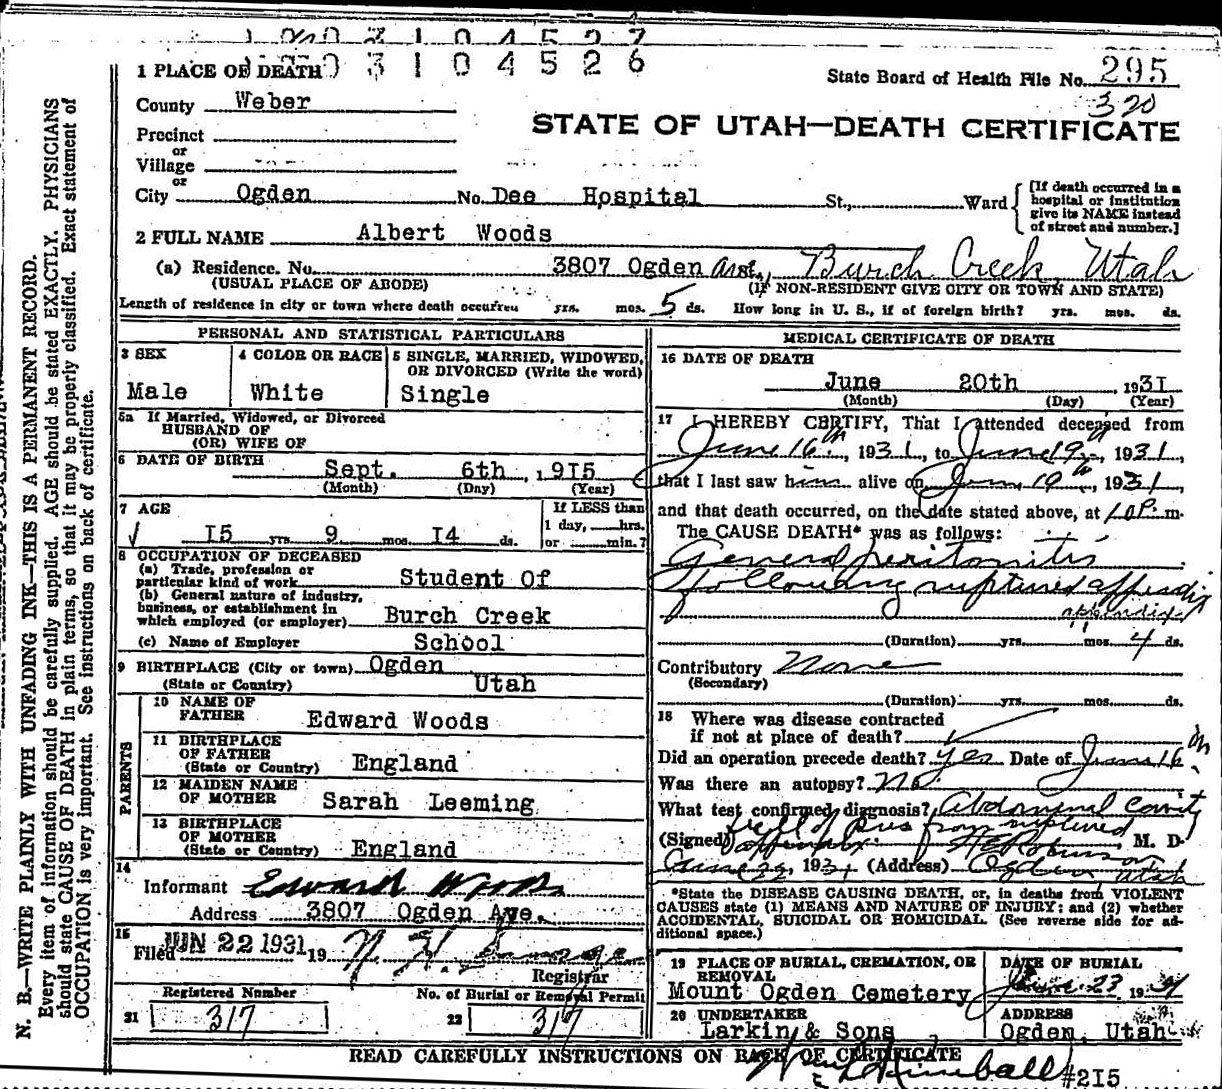 3104526
1 PLACE OF DEATH
State Board of Health File No. 295
320
County Weber
STATE OF UTAH—DEATH CERTIFICATE
Precinct
or
Village
or
City Ogden No. Dee Hospital St., Ward
[If death occurred in a
hospital or institution
give its NAME instead
of street and number.]
2 FULL NAME Albert Woods
(a) Residence. No. 3807 Ogden Burch Creek, Utah
(USUAL PLACE OF ABODE) (If NON-RESIDENT GIVE CITY OR TOWN AND STATE)
Length of residence in city or town where death occurred yrs. mos. 5 ds. How long in U. S., if of foreign birth? yrs. mos. ds.
PERSONAL AND STATISTICAL PARTICULARS
3 SEX
Male
4 COLOR OR RACE
White
5 SINGLE, MARRIED, WIDOWED,
OR DIVORCED (Write the word)
Single
5a If Married, Widowed, or Divorced
HUSBAND OF
(OR) WIFE OF
6 DATE OF BIRTH Sept. 6th, 1915
(Month) (Day) (Year)
7 AGE
15 yrs. 9 mos. 14 ds.
If LESS than
1 day, hrs.
or min.?
8 OCCUPATION OF DECEASED
(a) Trade, profession or
particular kind of work Student Of
(b) General nature of industry,
business, or establishment in
which employed (or employer) Burch Creek
(c) Name of Employer School
9 BIRTHPLACE (City or town) Ogden
(State or Country) Utah
PARENTS
10 NAME OF
FATHER Edward Woods
11 BIRTHPLACE
OF FATHER
(State or Country) England
12 MAIDEN NAME
OF MOTHER Sarah Leeming
13 BIRTHPLACE
OF MOTHER
(State or Country) England
14
Informant Edward Woods
Address 3807 Ogden Ave.
15
Filed JUN 22 1931 19
Registrar
Registered Number
21 317
No. of Burial or Removal Permit
22 317
MEDICAL CERTIFICATE OF DEATH
16 DATE OF DEATH
June 20th 1931
(Month) (Day) (Year)
17 I HEREBY CERTIFY, That I attended deceased from
June 16th, 1931, to June 19th, 1931,
that I last saw him alive on June 19th, 1931,
and that death occurred, on the date stated above, at 1 0 P. m.
The CAUSE DEATH* was as follows:
General peritonitis
following ruptured appendix
appendix
(Duration) yrs. mos. 4 ds.
Contributory None
(Secondary)
(Duration) yrs. mos. ds.
18 Where was disease contracted
if not at place of death?
Did an operation precede death? Yes Date of June 16th
Was there an autopsy? No
What test confirmed diagnosis? Abdominal Cavity
full of pus from ruptured
(Signed) appendix. M. D.
June 22, 1931 (Address) Ogden Utah
*State the DISEASE CAUSING DEATH, or, in deaths from VIOLENT
CAUSES state (1) MEANS AND NATURE OF INJURY; and (2) whether
ACCIDENTAL, SUICIDAL OR HOMICIDAL. (See reverse side for ad-
ditional space.)
19 PLACE OF BURIAL, CREMATION, OR
REMOVAL
Mount Ogden Cemetery
DATE OF BURIAL
June 23 1931
20 UNDERTAKER
Larkin & Sons
ADDRESS
Ogden, Utah
READ CAREFULLY INSTRUCTIONS ON BACK OF CERTIFICATE
Kimball #215
N. B.—WRITE PLAINLY WITH UNFADING INK—THIS IS A PERMANENT RECORD.
Every item of information should be carefully supplied. AGE should be stated EXACTLY. PHYSICIANS
should state CAUSE OF DEATH in plain terms, so that it may be properly classified. Exact statement of
OCCUPATION is very important. See instructions on back of certificate.